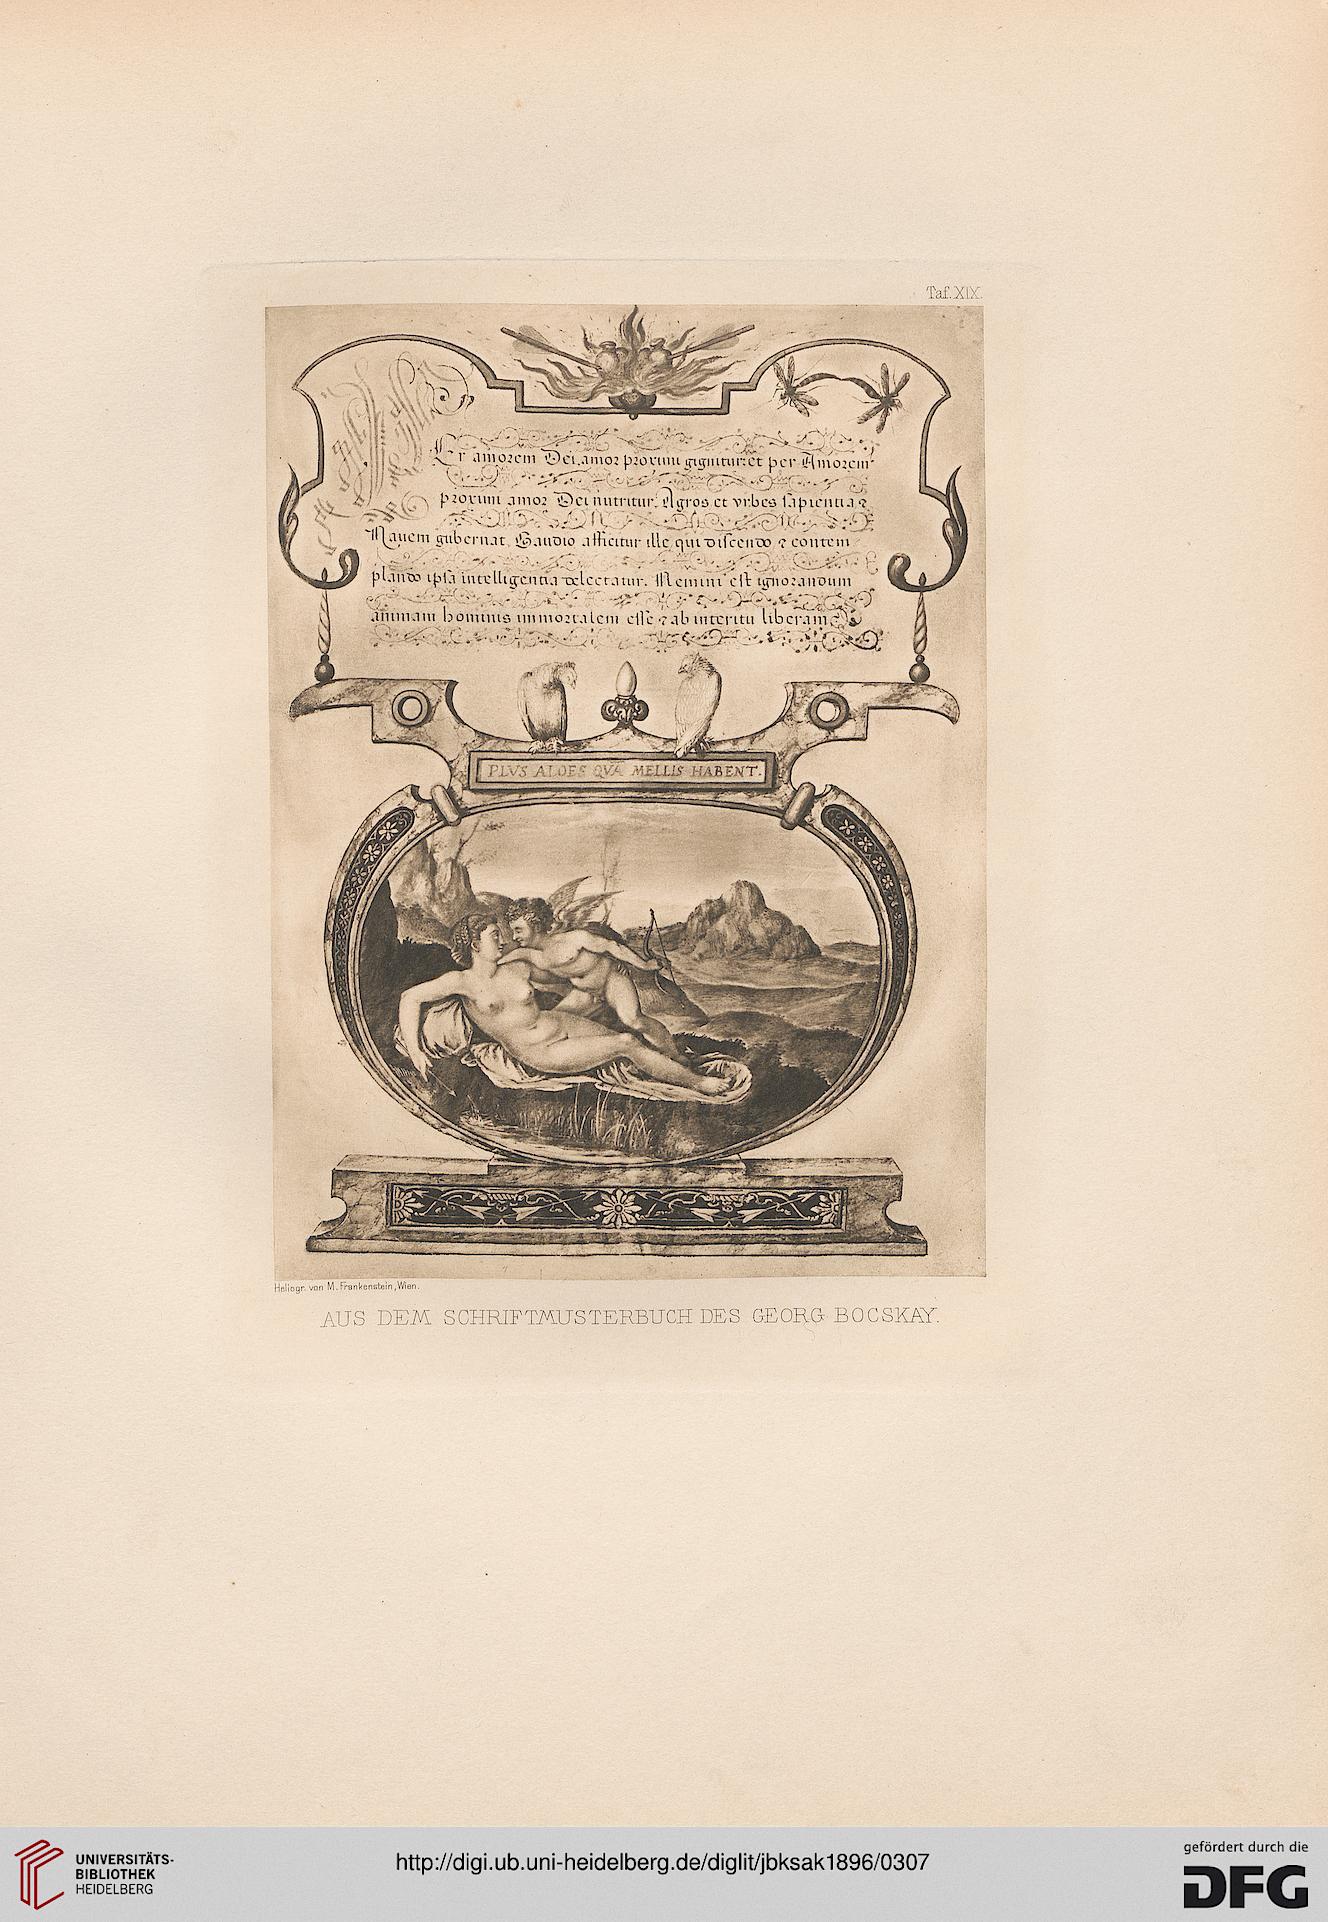 Taf. XIX.
Er amorem Dei, amor proximi gignitur: et per Amorem
proximi amor Dei nutritur. Agros et vrbes sapientia &
Nauem gubernat. Gaudio afficitur ille, qui discendo & contem
plando ipsa intelligentia delectatur. Nemini est ignorandum
animam hominis immortalem esse & ab interitu liberam &
PLVS ALOES QVA MELLIS HABENT.
Heliogr. von M. Frankenstein, Wien.
AUS DEM SCHRIFTMUSTERBUCH DES GEORG BOCSKAY.
UNIVERSITÄTS-
BIBLIOTHEK
HEIDELBERG
http://digi.ub.uni-heidelberg.de/diglit/jbksak1896/0307
gefördert durch die
DFG